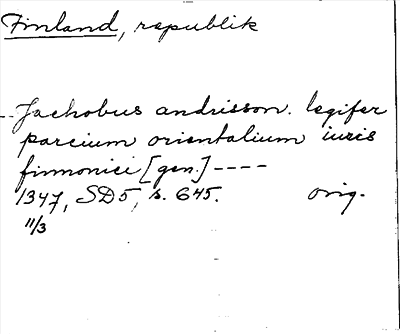 Finland, republik
-- Jachobus andrisson. legifer
parcium orientalium iuris
finnonici [gen.] ----
1347, SD5, s. 645. orig.
11/3